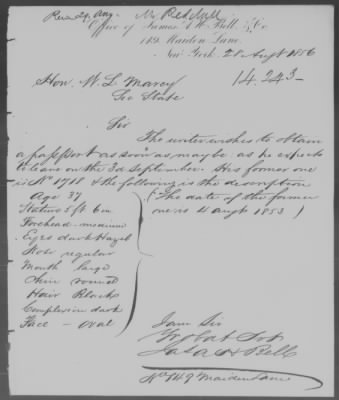 Recd 29. Aug. Mr
Office of James A H. Bell & Co
149 Maiden Lane,
New York. 28 Augt 1856
Hon. W. L Marcy 14.243-
Sec State
Sir
The writer wishes to obtain
a passport as soon as may be as he expects
to leave on the 3d September. His former one
is No 1718 & the following is the description
Age 37 (The date of the former
Stature 5 ft 6 in one is 4 augt 1853)
Forehead - medium
Eyes dark Hazel
Nose regular
Mouth large
Chin round
Hair Black
Complexion dark
Face - oval
I am Sir
Yr obdt Svt
Jas A H Bell
No 149 Maiden Lane